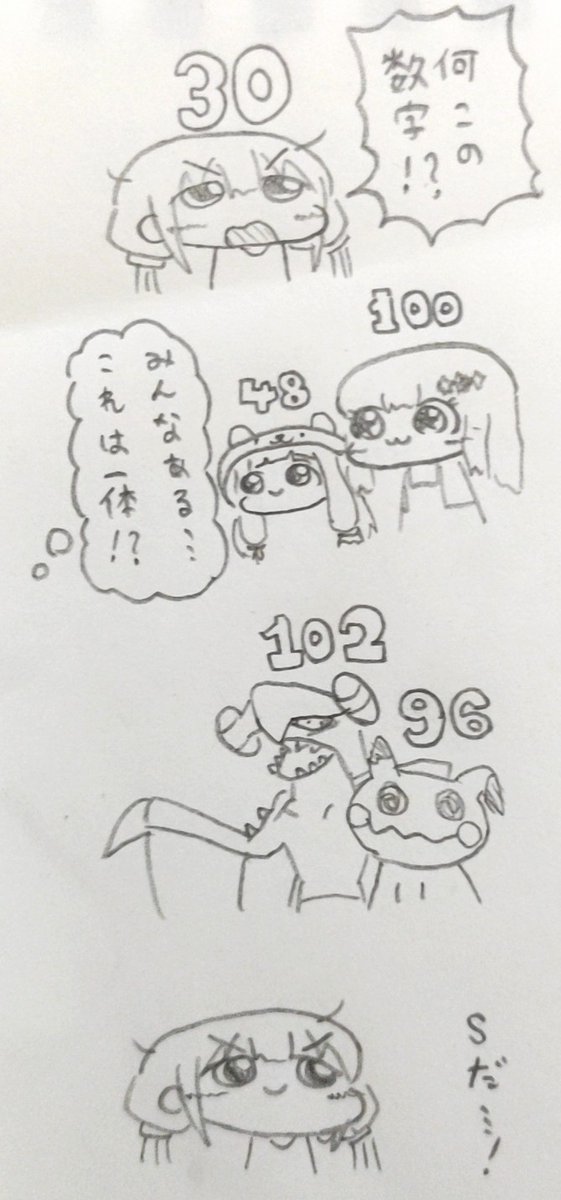 30
何この
数字!?
100
48
みんなある…
これは一体!?
102
96
Sだ…!